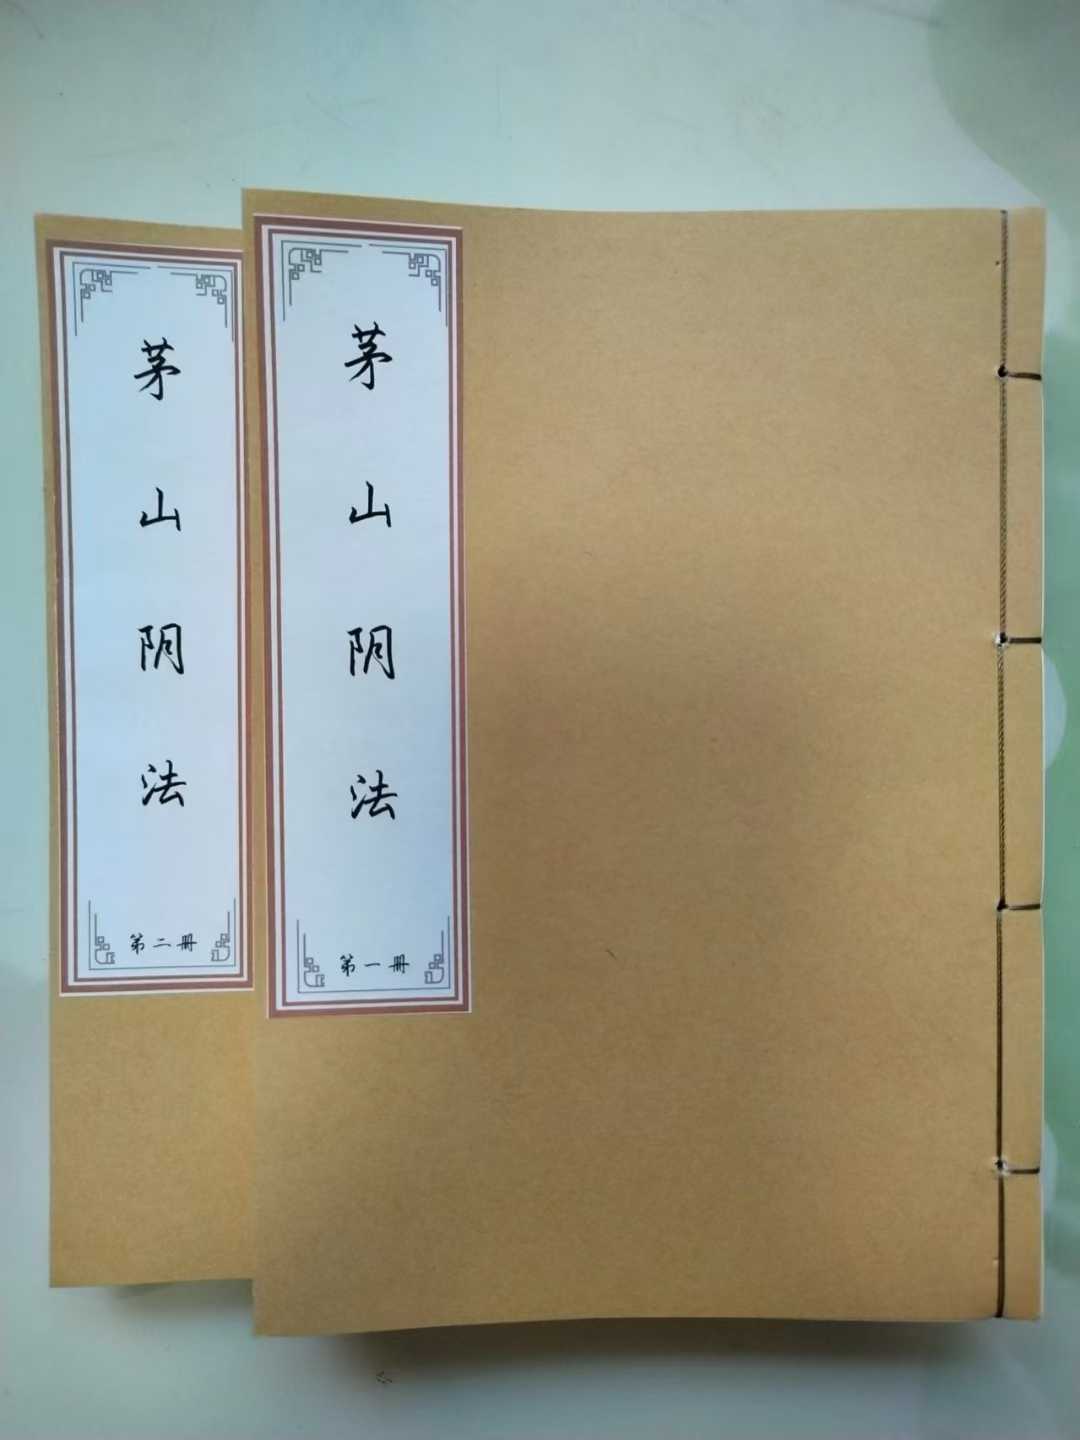 茅山阴法
第一册
茅山阴法
第二册